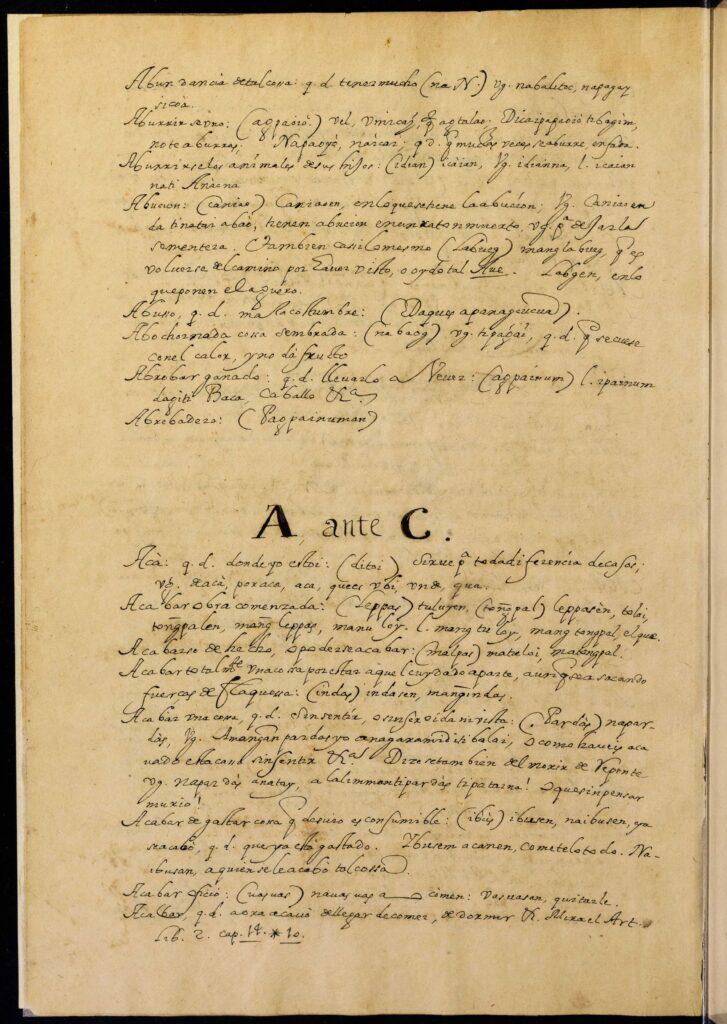 Abundancia de tal cosa: q. d. tener mucho (na N.) vg. nabalitoc, napagay
sicia.
Aburrirse vno: (agpaoió) vel,
note aburras: Napaoyò, naícas; q. d. q muchas veces se aburre, enfada.
Aburrirse los animales de sus hijos: (idian) icaian, Vg. idianna, l. icaian
nati Anacna
Abucion: (caniao) Caniaoen, en lo que se tiene la abucion: Vg. Caniaoen
da tinatai abaó, tienen abucion en un raton muerto, vg. pª dejar la
sementera. Tambien casi lo mesmo (Labueg) manglabueg, q es
volverse del camino por haver visto, o oydo tal Aue. Labgen, en lo
que ponen el aguero.
Abuso, q. d. mala costumbre: (Daques a panageucud).
Abochornada cosa sembrada: (nabaog) vg. tipagai, q. d. q se cuese
con el calor, y no dá frutto
Abrebar ganado: q. d. llevarlo a Vever: (agpainum) l. ipainum
dagiti Baca, Caballo &cª.
Abrebadero: (Pagpainuman)
A, ante C.
Acà: q. d. donde yo estoi: (ditoi) Sirve pª toda diferencia de casos;
vg. de acà, por aca, aca, que es vbi, vnde, qua.
Acabar obra comenzada: (Leppas) tuluyen, (tongpal) leppasen, toloi,
tongpalen, mang leppas, manuloy. l. mang tuloy, mang tongpal, el que.
Acabarse de hecho, o poderse acabar: (malpas) matuloi, matongpal.
Acabar totalmte vna cosa por estar a aquel cuydado aparte, aunq sea sacando
fuercas de flaquessa: (indas) indasen, mangindas.
Acabar vna cosa, q. d. sin sentir, o sin ser oida ni vista: (Pardàs) napar-
dàs, Vg. Amangan pardas yo a nagaramid iti balai, o como haveis aca
vado esta casa sin sentir &cª. Dizese tambien del morir de repente
vg. napardàs a natay, a la limmonti pardàs ti patay na! o que sin pensar
murió!
Acabar de gastar cosa q de suyo es consumible: (ibùs) ibusen, naibusen, ya
se acabó, q. d. que ya està gastado. Ybusem a canen, cometelo todo. Na-
ibusan, a quien se le acabó tal cossa.
Acabar oficio: (uasuas) nauasuas a comen: uasuasen, quitarle.
Acabar, q. d. aora acavó de llegar de comer, de dormir &. Mira el Art.
Lib. 2. cap. 14. * 10.